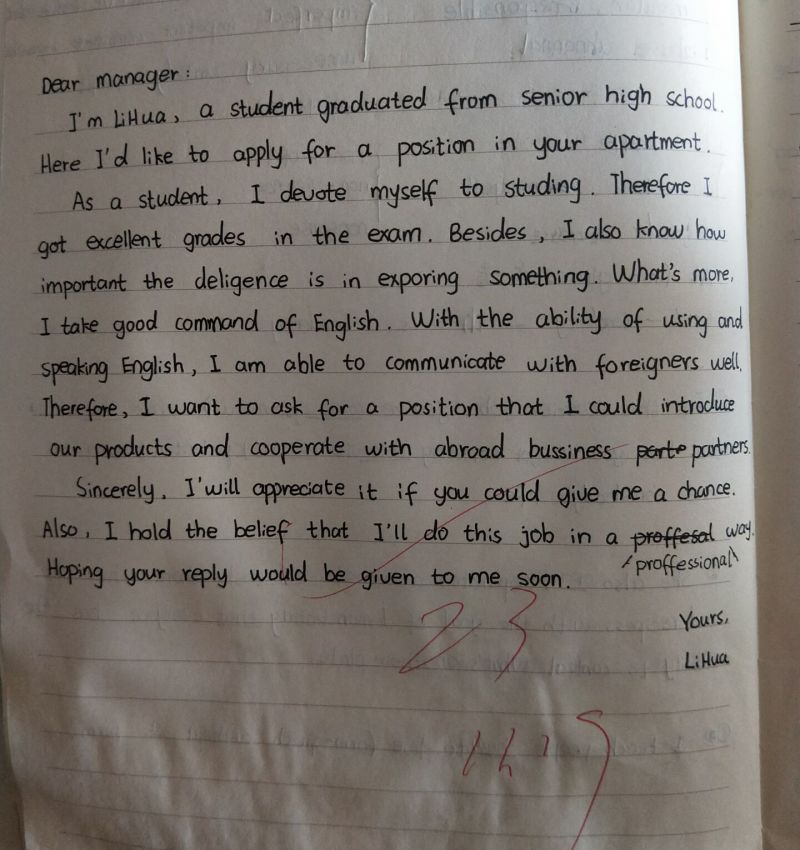 Dear manager:
I'm LiHua, a student graduated from senior high school.
Here I'd like to apply for a position in your apartment.
As a student, I devote myself to studing. Therefore I
got excellent grades in the exam. Besides, I also know how
important the deligence is in exporing something. What's more,
I take good command of English. With the ability of using and
speaking English, I am able to communicate with foreigners well.
Therefore, I want to ask for a position that I could introduce
our products and cooperate with abroad bussiness parte partners.
Sincerely, I'will appreciate it if you could give me a chance.
Also, I hold the belief that I'll do this job in a proffesal way.
proffessional
Hoping your reply would be given to me soon.
Yours,
LiHua
23